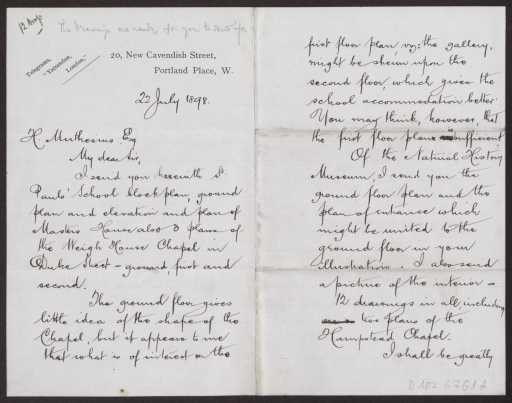 12 Aug
The Drawings are ready for you to send for
Telegrams,
London."
20, New Cavendish Street,
Portland Place, W.
22 July 1898.
H. Muthesius Esq
My dear Sir,
I send you herewith St.
Pauls' School block plan, ground
plan and elevation and plan of
Masters House also 3 plans of
the Weigh House Chapel in
Duke Street – ground, first and
second.
The ground floor gives
little idea of the shape of the
Chapel, but it appears to me
that what is of interest on the
first floor plan, viz: the gallery,
might be shewn upon the
second floor, which gives the
school accommodation better.
You may think, however, that
the first floor plan sufficient
Of the Natural History
Museum, I send you the
ground floor plan and the
plan of entrance which
might be united to the
ground floor in your
illustration. I also send
a picture of the interior –
12 drawings in all including
two plans of the
Hampstead Chapel.
I shall be greatly
D 102 6761A